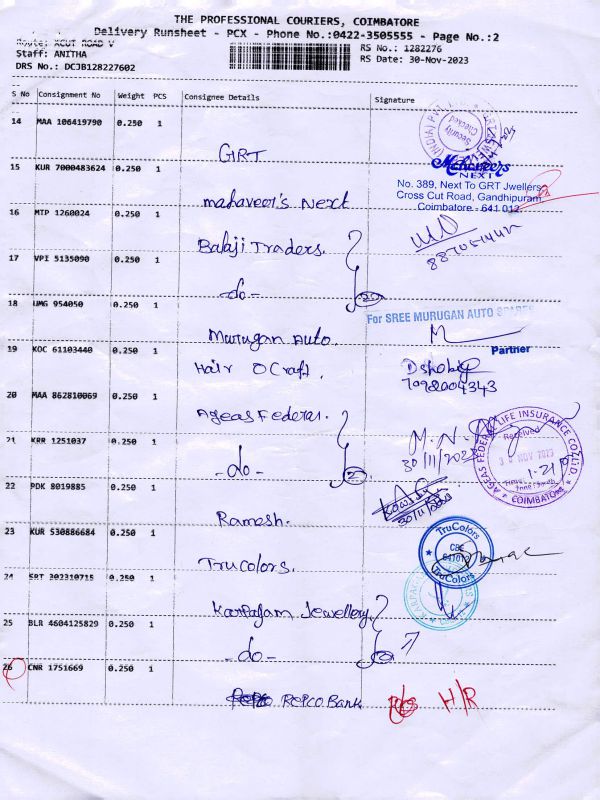 THE PROFESSIONAL COURIERS, COIMBATORE
Delivery Runsheet - PCX - Phone No.:0422-3505555 - Page No.:2
Route: XCUT ROAD V
Staff: ANITHA
DRS No.: DCJB128227602
RS No.: 1282276
RS Date: 30-Nov-2023
S No Consignment No Weight PCS Consignee Details Signature
14 MAA 106419790 0.250 1
GRT
Security Checked
15 KUR 7000483624 0.250 1
mahaveer's Next
Mahaveers
NEXT
No. 389, Next To GRT Jwellers
Cross Cut Road, Gandhipuram
Coimbatore - 641 012.
16 MTP 1260024 0.250 1
Balaji Traders.
17 VPI 5135090 0.250 1
-do-
18 UMG 954050 0.250 1
Murugan Auto.
For SREE MURUGAN AUTO SPARES
Partner
19 KOC 61103440 0.250 1
Hair O Craft.
7092004343
20 MAA 862810069 0.250 1
Ageas Federal.
21 KRR 1251037 0.250 1
-do-
M.N.
30/11/2023
AGEAS FEDERAL LIFE INSURANCE CO. LTD.
Received
30 NOV 2023
COIMBATORE
22 PDK 8019885 0.250 1
Ramesh.
30/11/2023
23 KUR 530886684 0.250 1
Trucolors.
TruColors
CBE
641012
TruColors
24 SRT 302310715 0.250 1
Karpagam Jewellery
25 BLR 4604125829 0.250 1
-do-
26 CNR 1751669 0.250 1
REPCO Bank
H/R